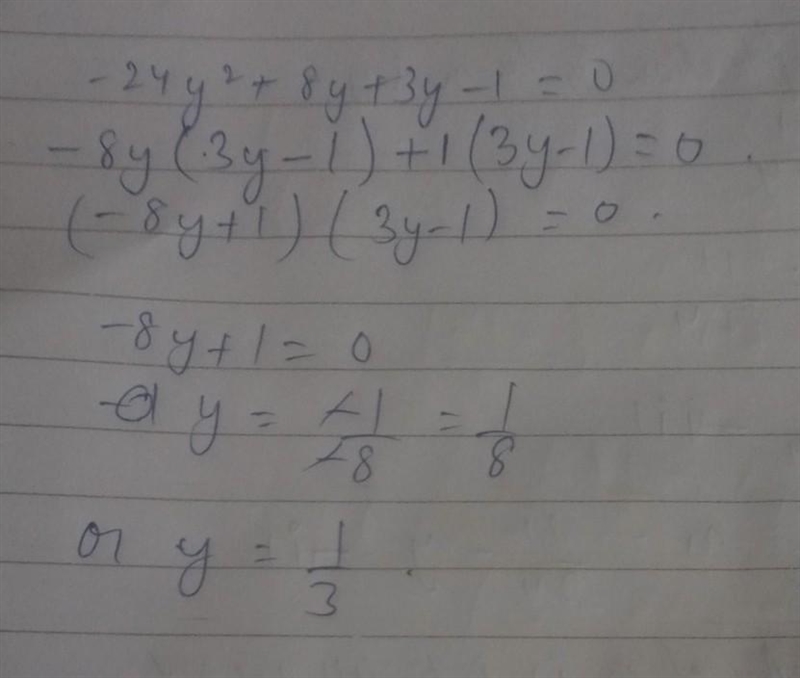 -24y² + 8y + 3y - 1 = 0
-8y(3y - 1) + 1(3y - 1) = 0.
(-8y + 1)(3y - 1) = 0.
-8y + 1 = 0
y = -1/-8 = 1/8
or y = 1/3.